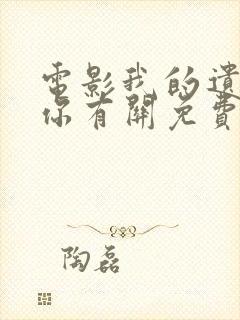 電影我的遺
你有關免費
陶磊